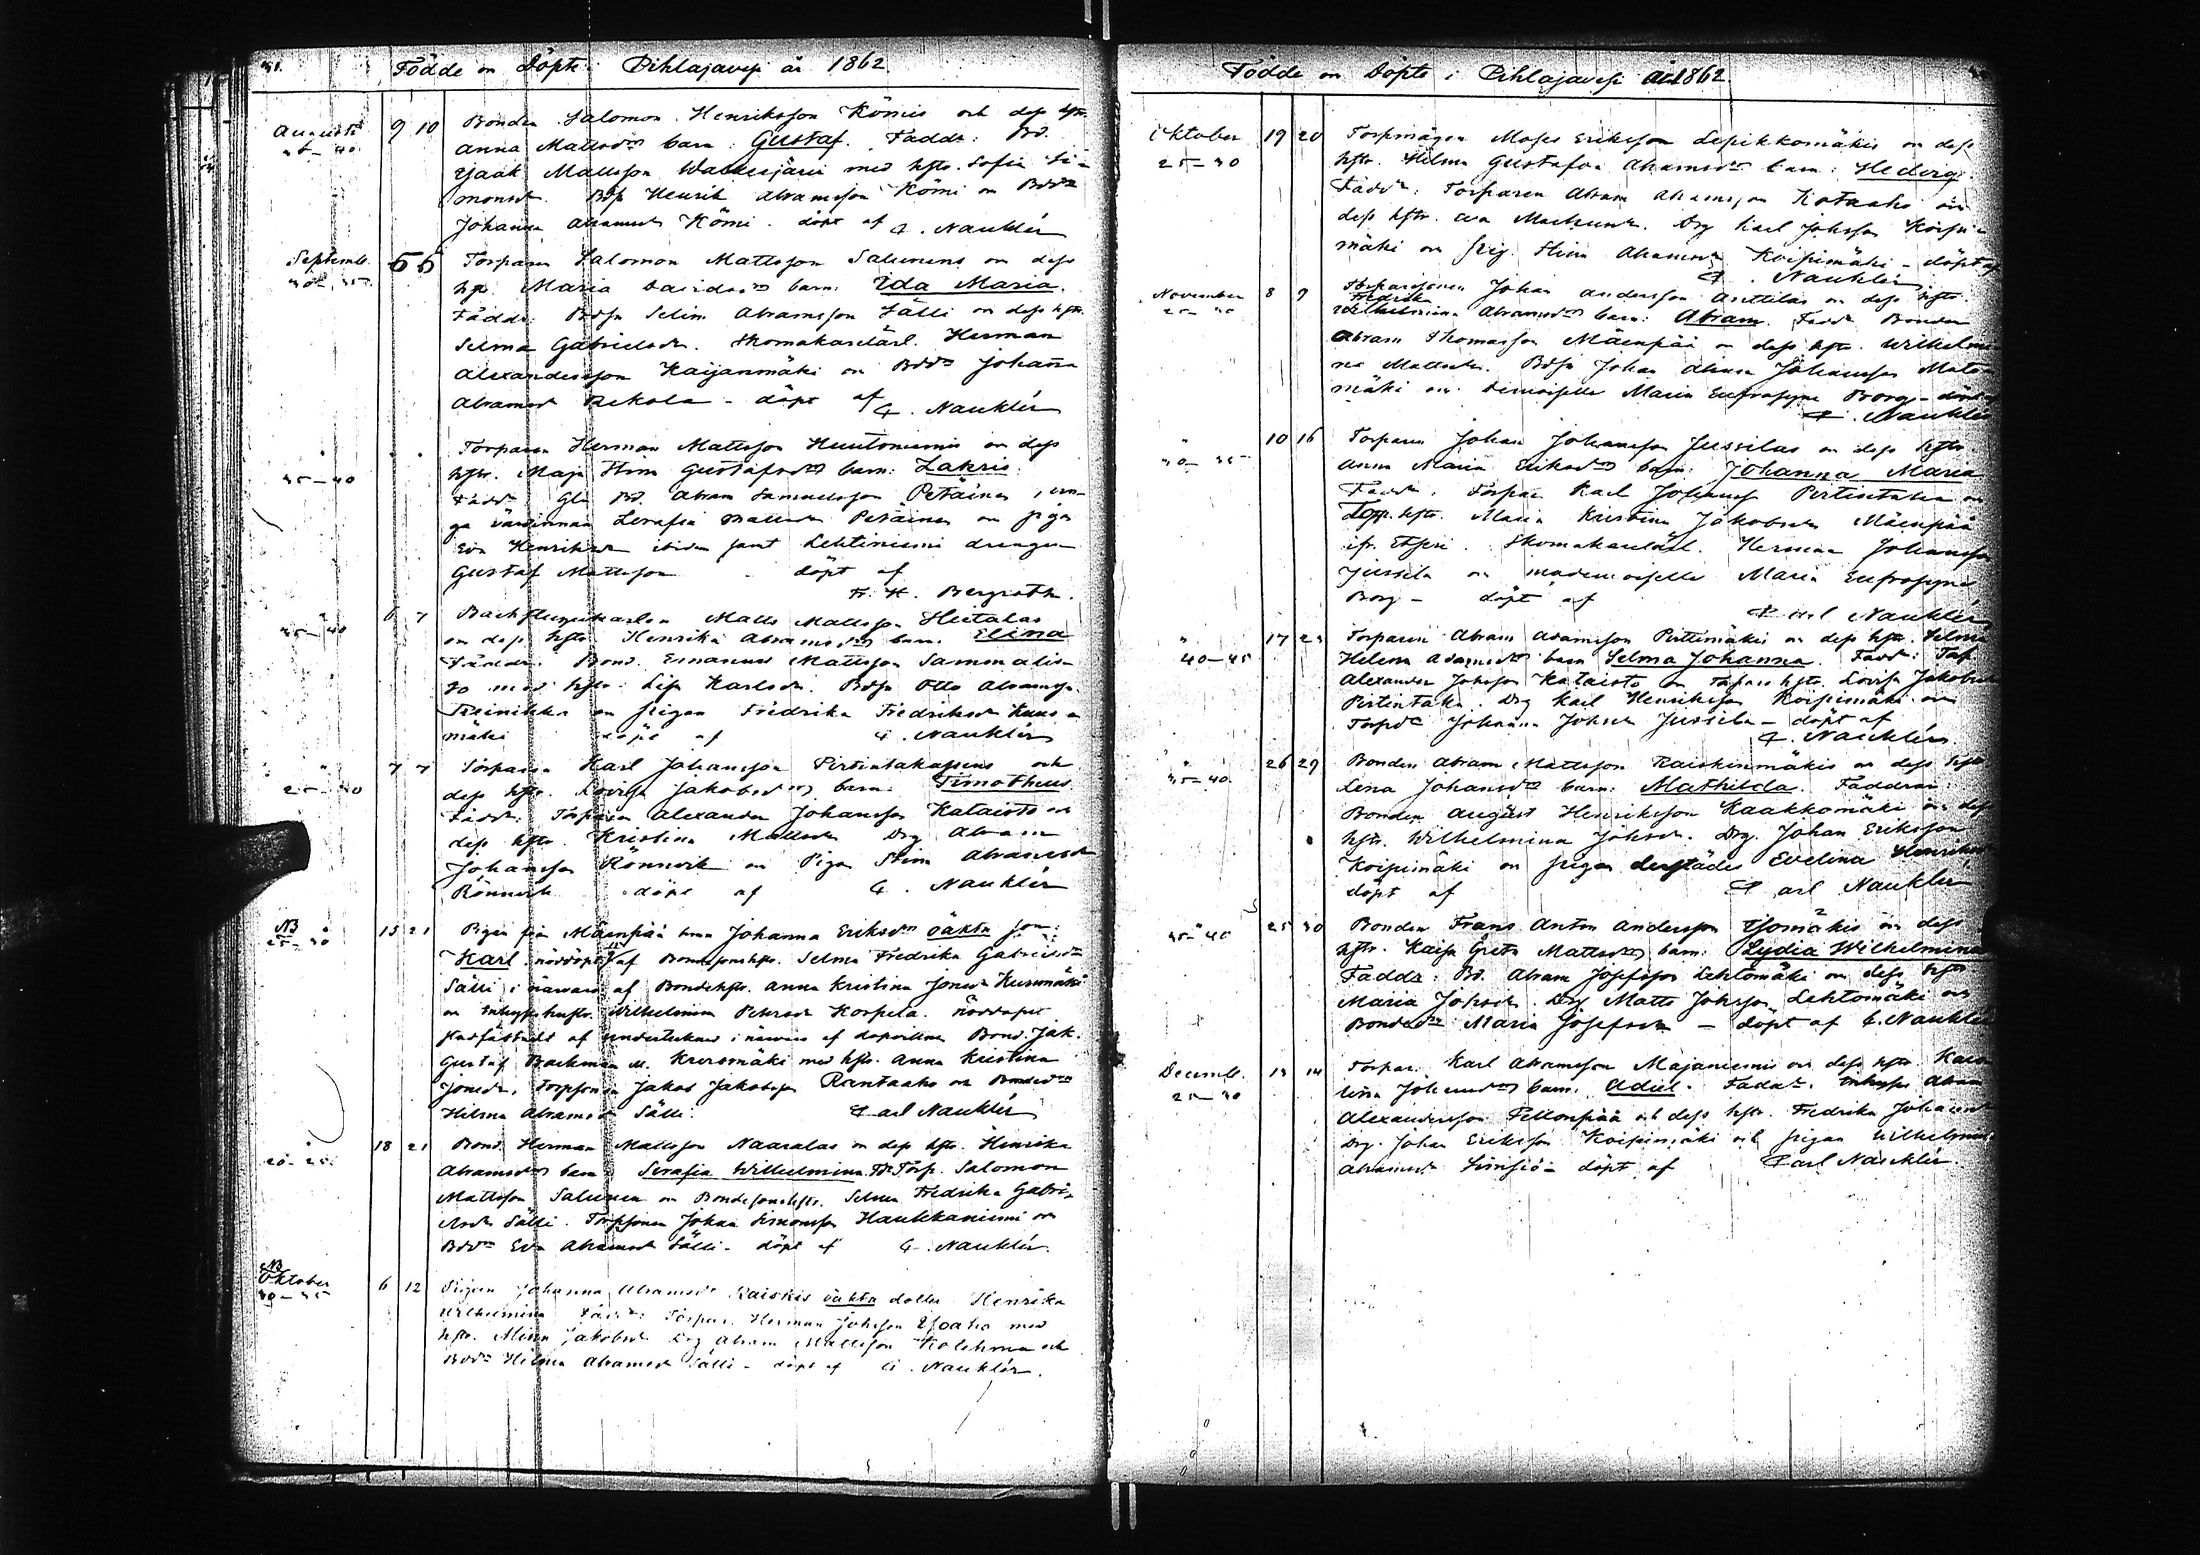 Födde o Döpte i Pihlajavesi år 1862
Augusti 9 10 Bonden Salomon Henriksson Kömis och dess hstr.
Anna Mattsdrs barn: Gustaf. Faddr: Bd.
Isaak Mattsson med hstr. Sofia Si-
monsd. Bdsn Henrik Abramsson Kömi o Bddr
Johanna Abramsd Kömi. döpt af C. Nauklér
Septemb. 6 6 Torparen Salomon Mattsson Salunens o dess
hstr. Maria Davidsdrs barn: Ida Maria.
Faddr: Bdsn Selim Abramsson Sälli o dess hstr.
Selma Gabrielsdr. Skomakarelärl. Herman
Alexandersson Kaijanmäki o Bddr Johanna
Abramsd Pekola - döpt af C. Nauklér
35-40 Torparen Herman Mattsson Huutoniemis o dess
hstr. Maja Stina Gustafsdrs barn: Zakris.
Faddr Bd. Abram Samuelsson Petäinen, un-
ga värdinnan Serafia Mattsdr Petäinen o piga
Eva Henriksdr ibidem samt Lehtiniemi drengen
Gustaf Mattsson döpt af
H. Bergroth.
6 7 Matts Mattsson Hietalas
o dess hstr. Henrika Abramsdrs barn: Elina
Faddr: Bond. Emanuel Mattsson Sammalis-
to med hstr. Lisa Karlsdr. Bdsn Otto Abramss.
Reinikka o pigan Fredrika Fredriksdr Kuus-
mäki döpt af C. Nauklér
7 7 Torparen Karl Johansson Pirtintakasens och
dess hstr. Lovisa Jakobsdrs barn: Timotheus
Faddr. Torparen Alexander Johansson Kataisto o
dess hstr. Kristina Mattsdr Drg Abram
Johansson Rönnvik o Pigan Stina Abramsdr
Rönnvik döpt af C. Nauklér
NB
25-30 15 21 Pigan från Mäenpää Johanna Eriksdrs oäkta son:
Karl nöddöpt af Bondesonshstr. Selma Fredrika Gabrielsdr
Sälli i närvaro af Bondehstr. Anna Kristina Jonsdr Kuusmäki
o Wilhelmina Petersdr Korpela. nöddopet
stadfästadt af undertecknad i närvaro af Bond. Jak.
Gustaf Backman med hstr. Anna Kristina
Jonsdr, Torpson Jakob Jakobsson Rantaaho o Bondedr
Hilma Abramsd Sälli. Carl Nauklér
20-25 18 21 Bond. Herman Mattsson Naaralas o dess hstr. Henrika
Abramsdrs barn: Serafia Wilhelmina. F: Torp. Salomon
Mattsson Salunen o Bondesonshstr. Selma Fredrika Gabri-
elsdr Sälli. Torpsonen Johan Simonsson Haukkaniemi o
Bddr Eva Abramsdr Sälli - döpt af C. Nauklér.
NB
Oktober
30-35 6 12 Pigan Johanna Abramsdr Raiskis oäkta dotter Henrika
Wilhelmina Faddr: Torpar. Herman Johsson med
hstr. Mina Jakobsdr Drg Abram Mattsson Kolehma och
Bddr Hilma Abramsdr Sälli - döpt af C. Nauklér.
Födde o Döpte i Pihlajavesi år 1862
Oktober
25-30 19 20 Torpmågen Moses Eriksson Lepikkomäkis o dess
hstr. Hilma Gustafva Abramsdrs barn: Hedvig
Faddr: Torparen Abram Abramsson Kotaaho o
dess hstr. Eva Drg Karl Johsson Koipi-
mäki o pig. Stina Abramsdr Koipimäki - döpt af
C. Nauklér
November 8 9 Torparesonen Johan Andersson Anttilas o dess hstr.
Fredrika
Wilhelmina Abramsdrs barn: Abram. Faddr Bonden
Abram Thomasson Mäenpää o dess hstr. Wilhelmi-
na Mattsdr. Bdsn Johan Johansson
mäki o Demoiselle Maria Eufrosyne Borg - döpt af
C. Nauklér
10 16 Torparen Johan Johansson Jussilas o dess hstr.
Anna Maria Eriksdrs barn: Johanna Maria
Faddr. Torpar. Karl Johanss. Pirtintaka o
dess hstr. Maria Kristina Jakobsdr Mäenpää
ifr. Etseri. Skomakarelärl. Herman Johansson
Jussila o mademoiselle Maria Eufrosyne
Borg - döpt af
Carl Nauklér
40-45 17 23 Torparen Abram Adamsson Pirttimäkis o dess hstr.
Helena Adamsdrs barn Selma Johanna. Faddr: Torp.
Alexander Johsson Kataisto o Torpare hstr. Lovisa Jakobsdr
Pirtintaka. Drg Karl Henriksson Koipimäki o
Torpdr Johanna Johsdr Jussila - döpt af
C. Nauklér.
35-40 26 29 Bonden Abram Mattsson Raiskinmäkis o dess hstr.
Lena Johansdrs barn: Mathilda. Faddrar:
Bonden August Henriksson Kaakkomäki o dess
hstr. Wilhelmina Johsdr. Drg. Johan Eriksson
Koipimäki o pigan derstädes Evelina Henriksdr
döpt af Carl Nauklér
35-40 25 30 Bonden Frans Anton Andersson Isomäkis o dess
hstr. Kajsa Greta Mattsdrs barn: Lydia Wilhelmina
Faddr: Bd. Abram Josefsson Lehtomäki o dess hstr
Maria Johsdr. Drg Matts Johsson Lehtomäki o
Bondedr Maria Josefsdr - döpt af C. Nauklér
Decemb.
25-30 13 14 Torpar. Karl Abramsson Majaniemis o dess hstr. Karo-
lina Johansdrs barn: Adiel. Faddr. Abram
Alexandersson Pellonpää och dess hstr. Fredrika Johansdr
Drg. Johan Eriksson Koipimäki och pigan Wilhelmina
Abramsdr - döpt af Carl Nauklér.